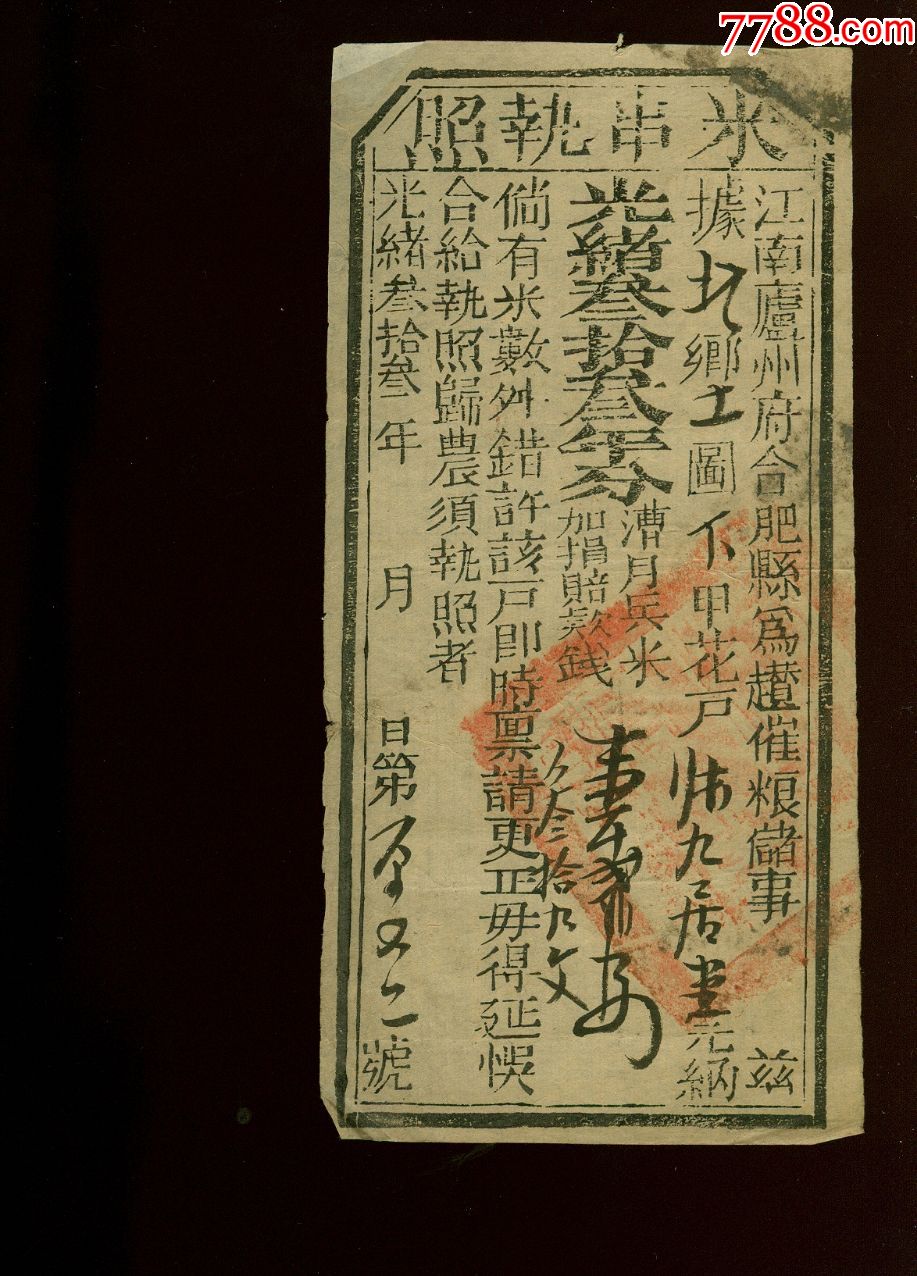 7788.com
米串執照
江南廬州府合肥縣爲趲催粮儲事 茲
據北鄉土圖下甲花戶 九居堂完納
光緒叁拾叁年分
漕月兵米
加捐賠欵錢 叁拾九文
倘有米數舛錯許該戶即時禀請更正毋得延悞
合給執照歸農須執照者
光緒叁拾叁年 月 日第 號